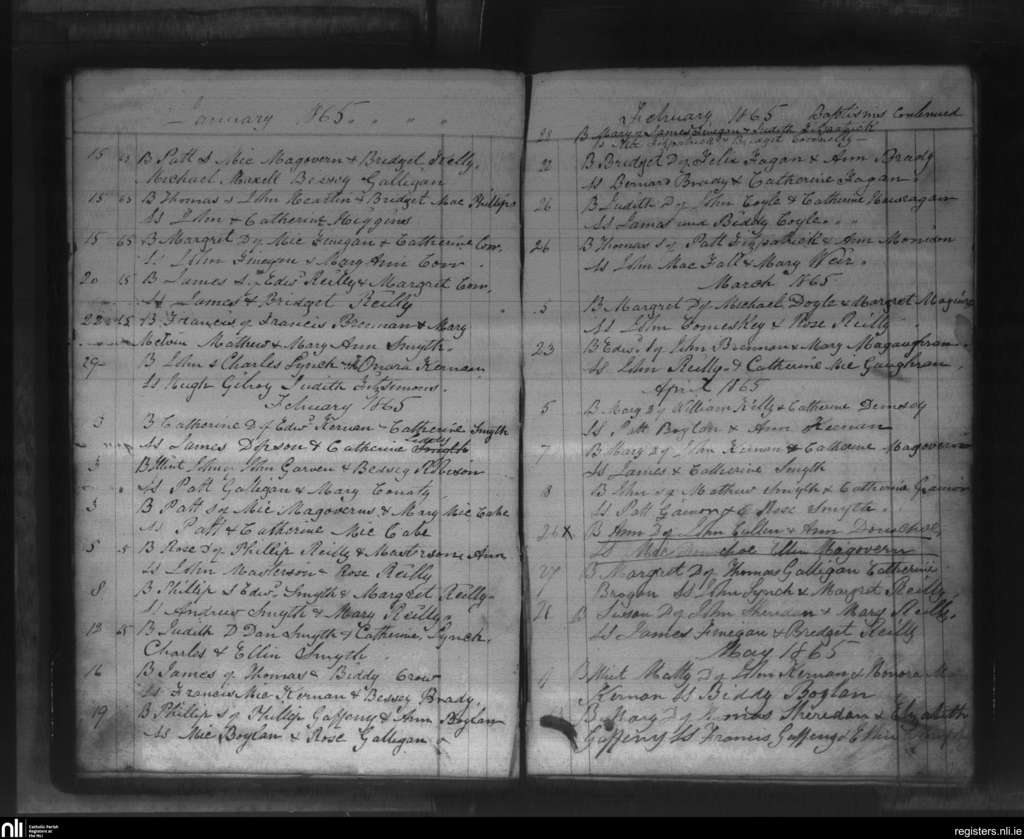 January 1865
15 65 B Patt S Mic Magovern & Bridget Reilly
Michael Maxell Bessey Galligan
15 65 B Thomas s John Heartin & Bridget Mac Phillips
Ss John & Catherine Higgins
15 65 B Margret D of Mic Finegan & Catherine Cow
Ss John & Mary Ann Corr
20 65 B James S of Edwd Reilly & Margret Cow
Ss James & Bridget Reilly
22 65 B Francis of Francis Breenan & Mary
Melvin Mathew & Mary Ann Smyth
29 B John s Charles Lynch & Onora Kernan
Ss Hugh Gilroy Judith Fitzsimons
February 1865
3 B Catherine D of Edwd Kernan Catherine Smyth
Ss James & Catherine
3 B Illist John of John Garven & Bessey
Ss Patt Galligan & Mary
3 B Patt S of Mic Magoverns & Mary Mic Cabe
Ss Patt & Catherine Mic Cabe
5 5 B Rose D of Phillip Reilly & Masterson Ann
Ss John Masterson Rose Reilly
8 B Phillip S Edwd Smyth & Margret Reilly
Ss Andrew Smyth & Mary Reilly
13 65 B Judith D Dan Smyth & Catherine Lynch
Charles & Ellin Smyth
16 B James of Thomas & Biddy Crow
Ss Francis Mic Kernan & Bessey Brady
19 B Phillip S of Phillip Gaffeny & Ann Boylan
Ss Mic Boylan & Rose Galligan
February 1865 Baptisms Continued
28 B Mary D James Finegan & Judith Fitzpatrick
Ss Mic Fitzpatrick & Bridget Connolly
27 B Bridget D of Felix Fagan & Ann Brady
Ss Bernard Brady & Catherine Fagan
26 B Judith D of John Coyle & Catherine
Ss James and Biddy Coyle
26 B Thomas S of Patt Fitzpatrick & Ann
Ss John Mac Fall & Mary Weir
March 1865
5 B Margret D of Michael Doyle & Margret Maguire
Ss John Comeskey & Rose Reilly
23 B Edwd S of John Brennan & Mary Magaughran
Ss John Reilly & Catherine Mic Gaughran
April 1865
5 B Mary D of William Reilly & Catherine Demsey
Ss Patt Boylan & Ann Keenan
7 B Mary D of John Kernan & Catherine Magovern
Ss James & Catherine Smyth
8 B John S of Mathew Smyth & Catherine Gaimor
Ss Patt Gaimor & Rose Smyth
26 X B Ann D of John Cullen & Ann Donohoe
Ss Mic Donohoe Ellin Magovern
27 B Margret D of Thomas Galligan Catherine
Brogan Ss John Lynch & Margret Reilly
28 B Susan D of John Sheridan & Mary Reilly
Ss James Finegan & Bredget Reilly
May 1865
9 B Illist Matty D of John Kernan & Honora Mc
Kernan Ss Biddy Boylan
B Mary D of Thomas Sheredan & Elizabeth
Gaffeny Ss Francis Gaffeny & Ellin
nli Catholic Parish
Registers at
the NLI
registers.nli.ie